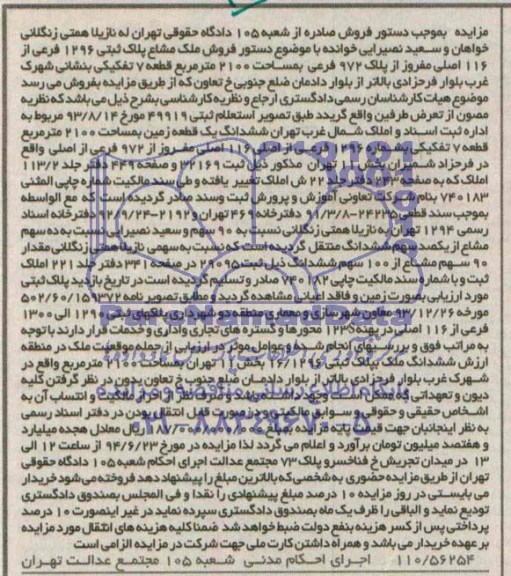 مزایده بموجب دستور فروش صادره از شعبه ۱۰۵ دادگاه حقوقی تهران له نازیلا همتی زنگلانی
خواهان و سعید نصیرایی خوانده با موضوع دستور فروش ملک مشاع پلاک ثبتی ۱۲۹۶ فرعی از
۱۱۶ اصلی مفروز از پلاک ۹۷۲ فرعی بمساحت ۲۱۰۰ مترمربع قطعه ۷ تفکیکی بنشانی شهرک
غرب بلوار فرحزادی بالاتر از بلوار دادمان ضلع جنوبی خ تعاون که از طریق مزایده بفروش می رسد
موضوع هیات کارشناسان رسمی دادگستری ارجاع و نظریه کارشناسی بشرح ذیل می باشد که نظریه
مصون از تعرض طرفین واقع گریدد طبق تصویر استعلام ثبتی ۴۹۹۱۹ مورخ ۹۳/۸/۱۴ مربوط به
اداره ثبت اسناد و املاک شمال غرب تهران ششدانگ یک قطعه زمین بمساحت ۲۱۰۰ مترمربع
قطعه ۷ تفکیکی بشماره ۱۲۹۶ فرعی از اصلی ۱۱۶ اصلی مفروز از ۹۷۲ فرعی از اصلی واقع
در فرحزاد شمیران بخش ۱۱ تهران مذکور ذیل ثبت ۲۲۱۶۹ و صفحه ۴۴۹ دفتر جلد ۱۱۳/۲
املاک که به صفحه ۲۴۳ دفتر جلد ۲۲ ش املاک تغییر یافته و طی سند مالکیت شماره چاپی المثنی
۷۴۰۱۸۳ بنام شرکت تعاونی آموزش و پرورش ثبت وسند صادر گردیده است که مع الواسطه
بموجب سند قطعی ۲۴۲۲۵-۹۰/۳/۸ دفترخانه ۴۶۹ تهران و ۲۱۹۲-۹۲/۹/۲۴ دفترخانه اسناد
رسمی ۱۲۹۴ تهران به نازیلا همتی زنگلانی نسبت به ۹۰ سهم و سعید نصیرایی نسبت به ده سهم
مشاع از یکصد سهم ششدانگ منتقل گردیده است که نسبت به سهمی نازیلا همتی زنگلانی مقدار
۹۰ سهم مشاع از ۱۰۰ سهم ششدانگ ذیل ثبت ۲۹۰۹۵ در صفحه ۳۴۱ دفتر جلد ۲۲۱ املاک
ثبت و با شماره سند مالکیت چاپی ۷۴۰۱۸۲ صادر و تسلیم گردیده است در تاریخ بازدید پلاک ثبتی
مورد ارزیابی بصورت زمین و فاقد اعیانی مشاهده گردید و مطابق تصویر نامه ۵۰۲/۶۰/۱۵۹۳۷۲
مورخه ۱۲/۲۶ معاون شهرسازی و معماری منطقه دو شهرداری پلاکهای ثبتی ۱۲۹۰ الی ۱۳۰۰
فرعی از ۱۱۶ اصلی در پهنه S123 محورها و گستره های تجاری و اداری و خدمات قرار دارند با توجه
به مراتب فوق و بررسیهای انجام شده و عوامل موثر در ارزیابی از جمله موقعیت ملک در منطقه
ارزش ششدانگ ملک بپلاک ثبتی ۱۶/۱۲۹۶ بخش ۱۱ تهران بمساحت ۲۱۰۰ مترمربع واقع در
شهرک غرب بلوار فرحزادی بالاتر از بلوار دادمان ضلع جنوب خ تعاون بدون در نظر گرفتن کلیه
دیون و تعهداتی که ممکن است وجود داشته باشد و صرف نظر از نوع مالکیت و انتساب آن به
اشخاص حقیقی و حقوقی و سوابق مالکیت و در صورت قابل انتقال بودن در دفتر اسناد رسمی
به نظر اینجانبان جهت قیمت پایه مزایده بمبلغ ریال معادل هجده میلیارد
و هفتصد میلیون تومان برآورد و اعلام می گردد لذا مزایده در مورخ ۹۴/۶/۲۳ از ساعت ۱۲ الی
۱۳ در میدان تجریش خ فناخسرو پلاک ۷۳ مجتمع عدالت اجرای احکام شعبه ۱۰۵ دادگاه حقوقی
تهران از طریق مزایده حضوری به شخصی که بالاترین مبلغ را پیشنهاد دهد فروخته می شود خریدار
می بایستی در روز مزایده ۱۰ درصد مبلغ پیشنهادی را نقدا و فی المجلس بصندوق دادگستری
تودیع نماید و الباقی را ظرف یک ماه بصندوق دادگستری سپرده نماید در غیر اینصورت ۱۰ درصد
پرداختی پس از کسر هزینه بنفع دولت ضبط خواهد شد ضمنا کلیه هزینه های انتقال مورد مزایده
بر عهده خریدار می باشد و همراه داشتن کارت ملی جهت شرکت در مزایده الزامی است
۱۱۰/۵۶۲۵۴ اجرای احکام مدنی شعبه ۱۰۵ مجتمع عدالت تهران